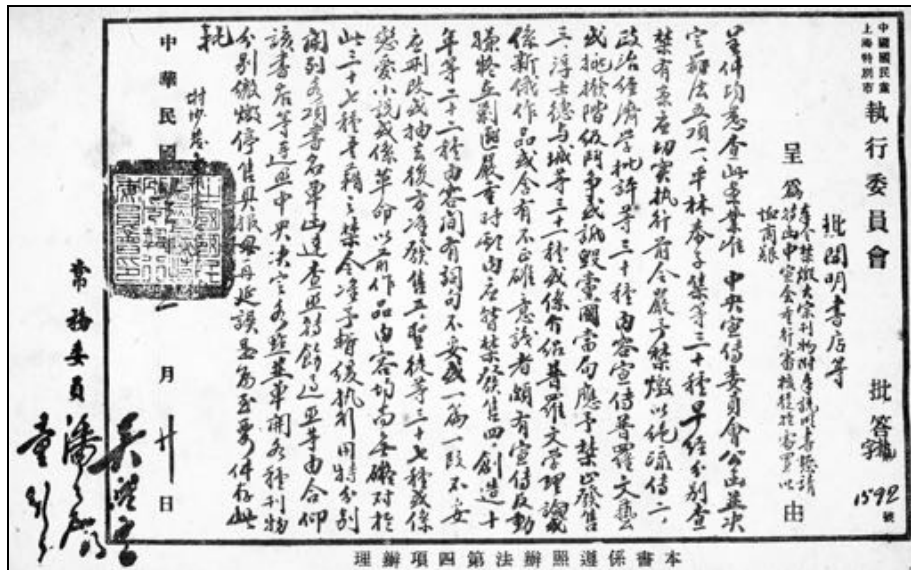 中國國民黨
上海特別市
執行委員會 批答
字
1592號
批開明書店等
呈為
由
呈件均悉查此案業准 中央宣傳委員會公函並決
定辦法五項一、平林泰子集等三十種早經分別查
禁有案應切實執行前令嚴予禁燬以絕流傳二、
政治經濟學批評等三十種內容宣傳普羅文藝
或挑撥階級鬥爭或詆毀黨國當局應予禁止發售
三、浮士德與城等三十一種或係介紹普羅文學理論或
係新俄作品或含有不正確意識者頗有宣傳反動
嫌疑在剿匪嚴重時期內應暫禁發售四、創造十
年等二十二種內容間有詞句不妥或一篇一段不妥
應刪改或抽去後方准發售五、聖徒等三十七種或係
戀愛小說或係革命以前作品內容均尚無礙對於
此三十七種書籍之禁令准予暫緩執行用特分別
開列各項書名單函達查照轉飭遵照等由合仰
該書店等遵照中央決定各點並單開各種刊物
分別繳燬停售具報毋再延誤是為至要件存此
批
中華民國 月廿日
常務委員
本書係遵照辦法第四項辦理